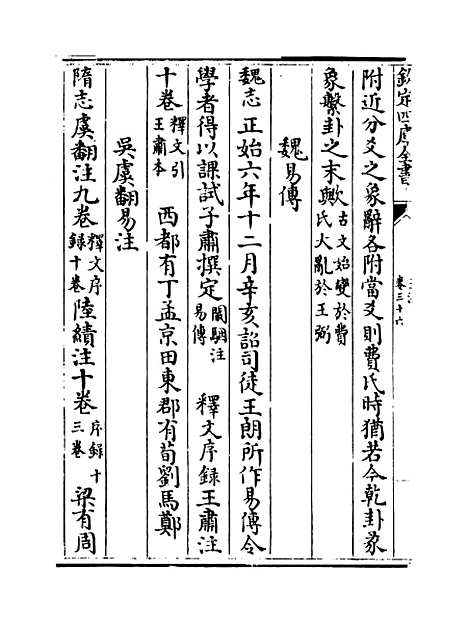 欽定四庫全書
卷三十六
附近分爻之象辭各附當爻則費氏時猶若今乾卦彖
象繫卦之末歟古文始變於費氏大亂於王弼
魏易傳
魏志正始六年十二月辛亥詔司徒王朗所作易傳令
學者得以課試子肅撰定闞駰注易傳 釋文序録王肅注
十卷釋文引王肅本 西都有丁孟京田東郡有荀劉馬鄭
吳虞翻易注
隋志虞翻注九卷釋文序録十卷陸績注十卷序録十三卷 梁有周